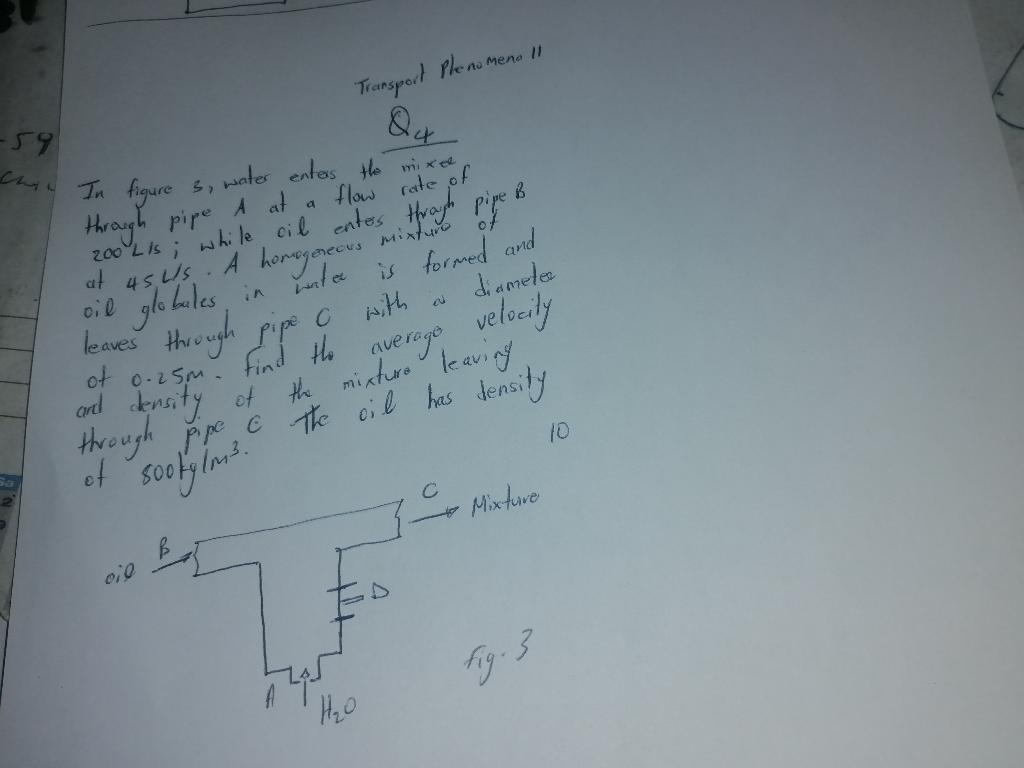 Transport Phenomena 11
Q4
In figure 3, water enters the mixer
through pipe A at a flow rate of
200 L/s ; while oil enters through pipe B
at 45 L/s . A homogeneous mixture of
oil globules in water is formed and
leaves through pipe C with a diameter
of 0.25m . Find the average velocity
and density of the mixture leaving
through pipe C The oil has density
of 800kg/m³.
10
C
Mixture
B
oil
D
A
H2O
fig. 3
-59